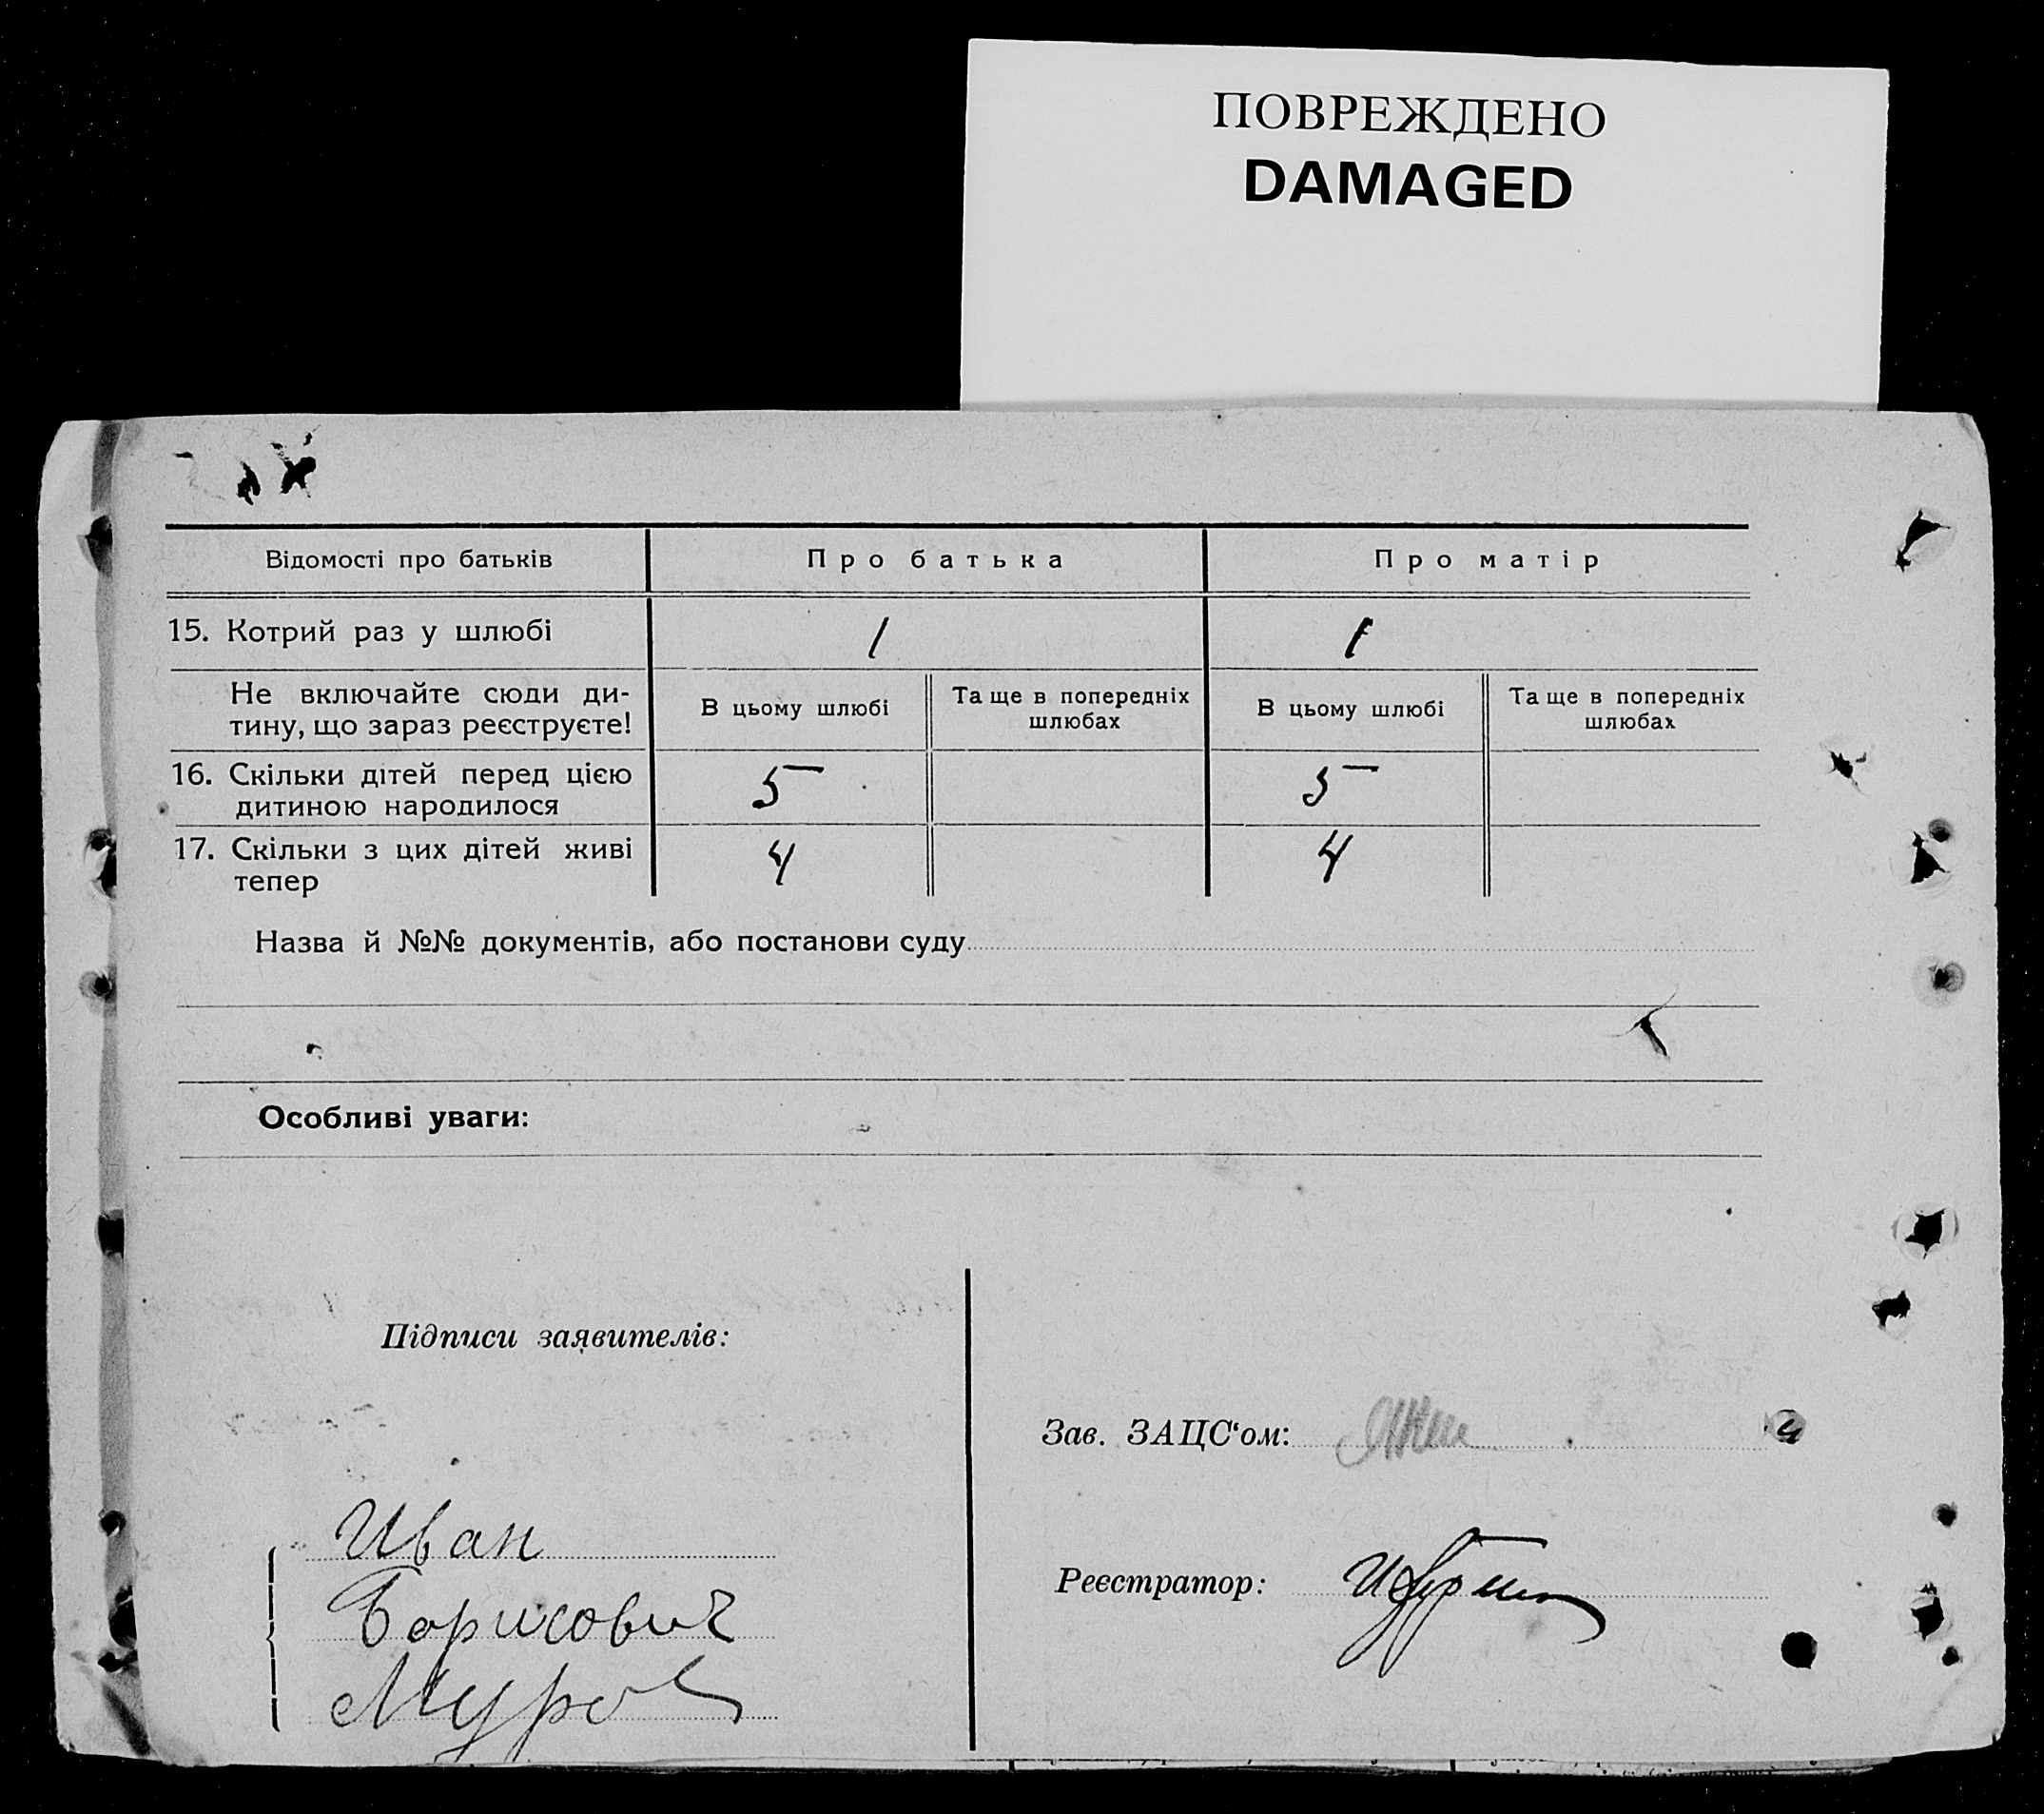 ПОВРЕЖДЕНО
DAMAGED
Відомості про батьків Про батька Про матір
15. Котрий раз у шлюбі 1 1
Не включайте сюди ди-
тину, що зараз реєструєте!
В цьому шлюбі
Та ще в попередніх
шлюбах
В цьому шлюбі
Та ще в попередніх
шлюбах
16. Скільки дітей перед цією
дитиною народилося
5 5
17. Скільки з цих дітей живі
тепер
4 4
Назва й №№ документів, або постанови суду
Особливі уваги:
Підписи заявителів:
Зав. ЗАЦС‘ом:
Иван
Реєстратор:
Борисович